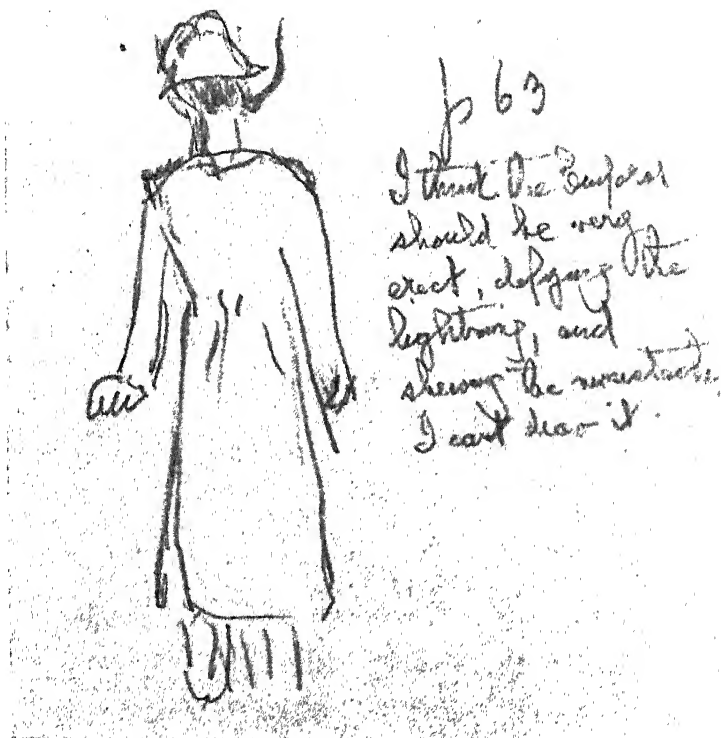 p 63
I think the Emperor
should be very
erect, defying the
lightning, and
shewing the moustache.
I cant draw it.